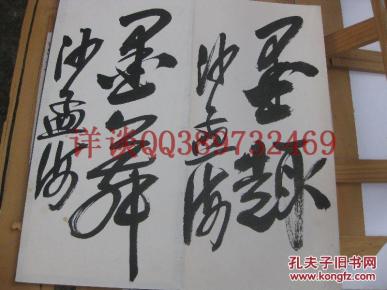 墨趣
沙孟海
墨舞
沙孟海
详谈QQ389732469
孔夫子旧书网